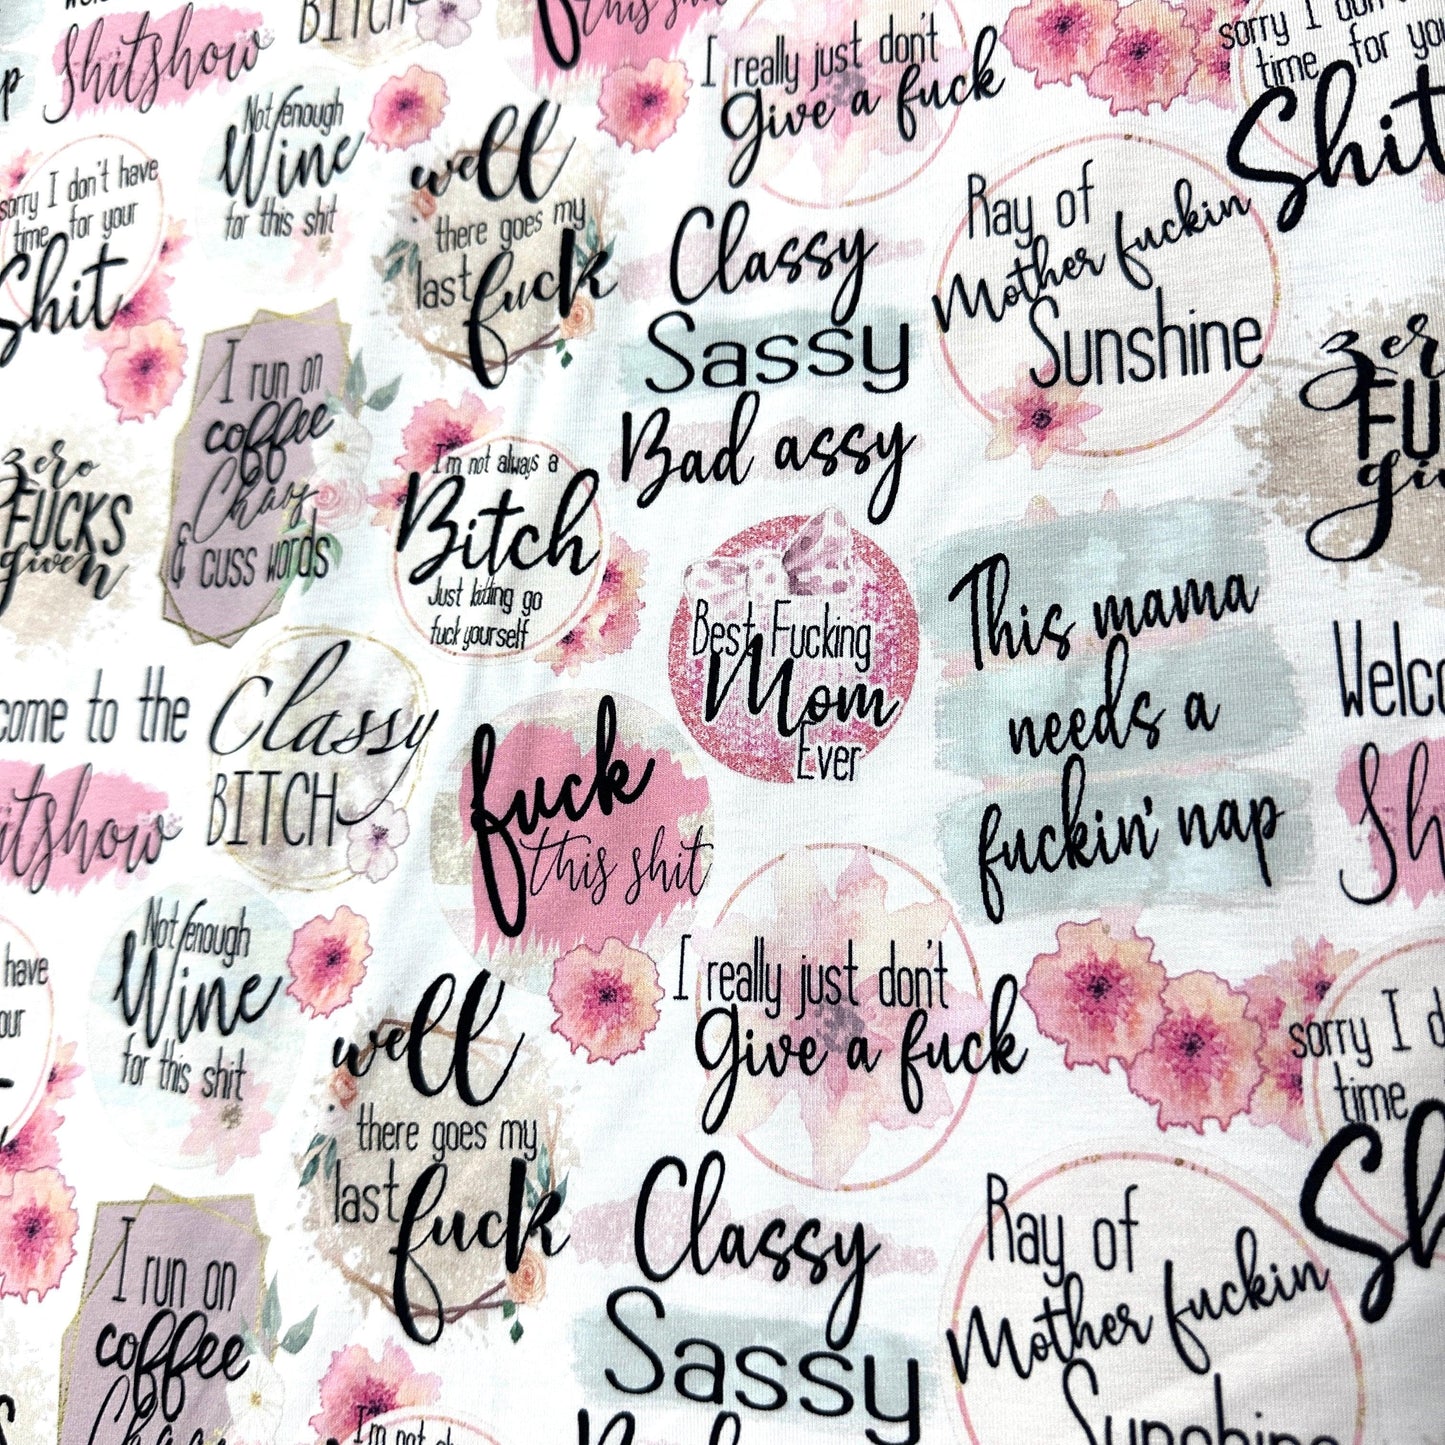 Shitshow
BITCH
this shit
I really just don't
Give a fuck
sorry I don't
time for your
Shit
Not enough
Wine
for this shit
well
there goes my
last fuck
sorry I don't have
time for your
Shit
Classy
Sassy
Bad assy
Ray of
Mother fuckin
Sunshine
I run on
coffee
Chaos
& cuss words
zero
FUCKS
given
I'm not always a
Bitch
Just kidding go
fuck yourself
Best Fucking
Mom
Ever
This mama
needs a
fuckin' nap
zero
FU
giv
come to the
itshow
Classy
BITCH
fuck
this shit
Welco
Sh
have
our
Not enough
Wine
for this shit
well
there goes my
last fuck
I really just don't
Give a fuck
sorry I d
time
Sh
Classy
Sassy
Ray of
Mother fuckin
Sunshine
I run on
coffee
Chaos
I'm not al